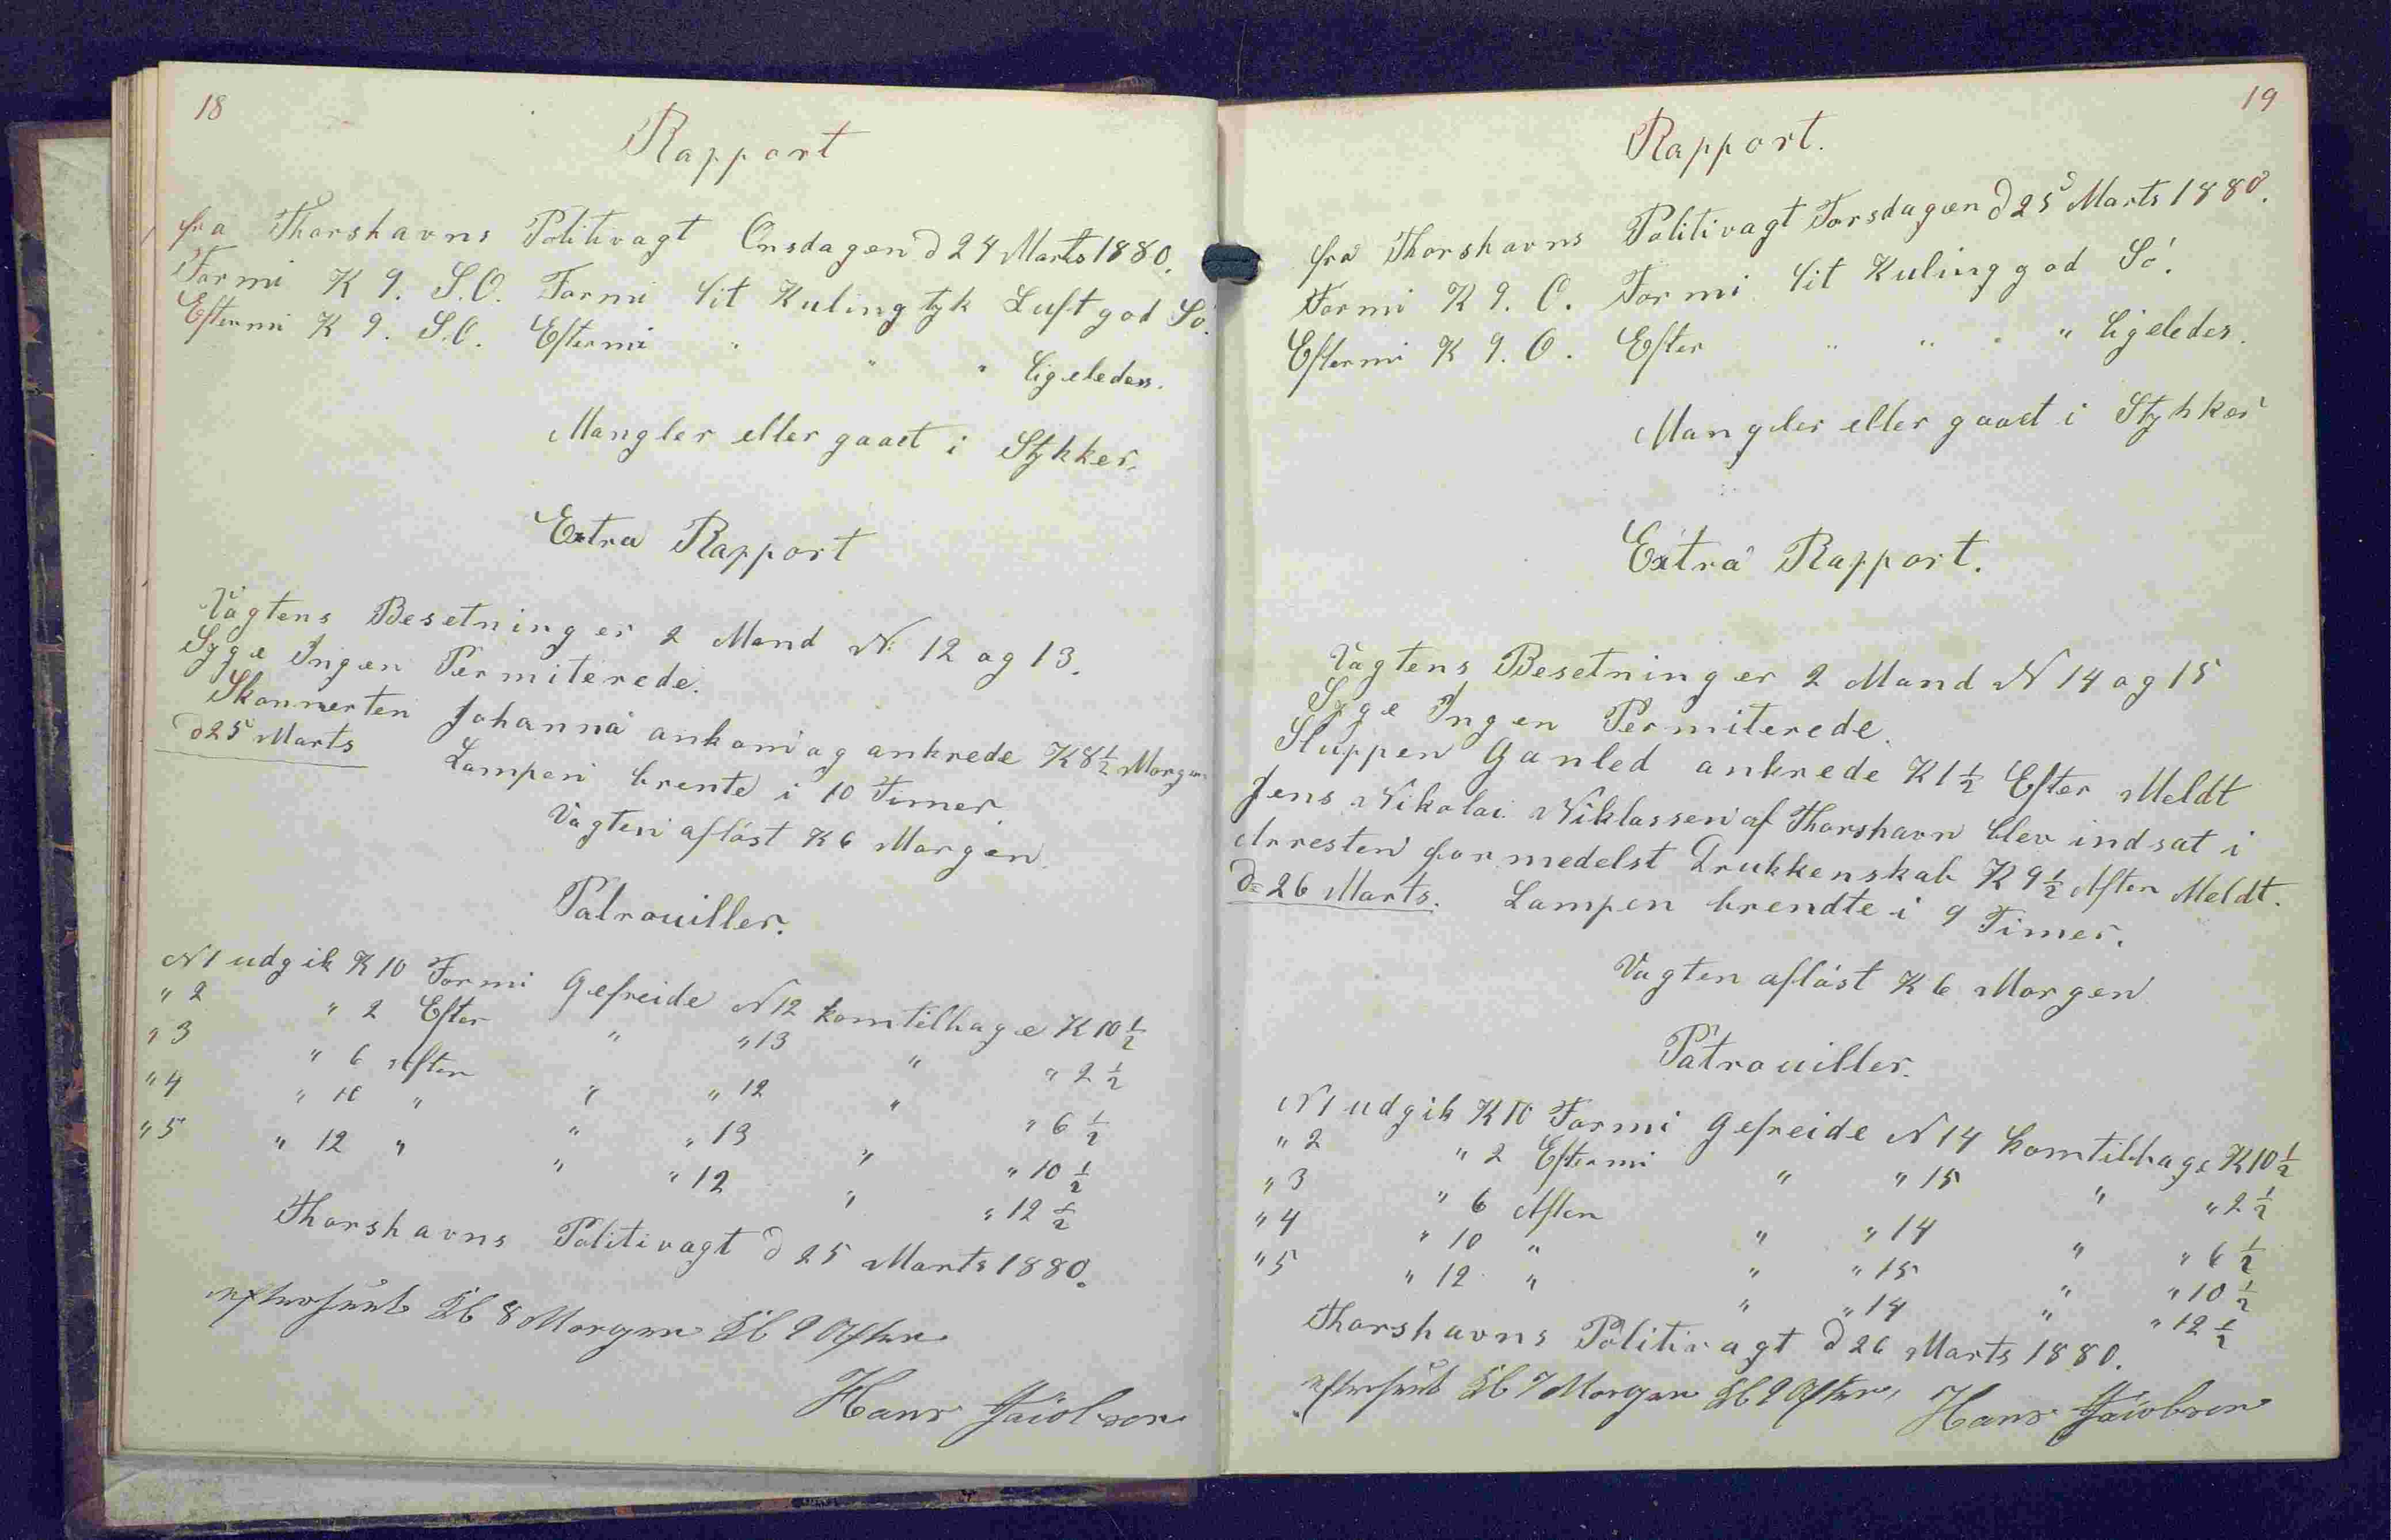 18
Rapport
fra Thorshavns Politivagt Onsdagen d 24 Marts 1880.
Formi K 9. S.O. Formi lit Kuling tyk Luft god Sö.
Eftermi K 9. S.O. Eftermi " " " ligeledes.
Mangler eller gaaet i Stykker.
Extra Rapport
Vagtens Besetning er 2 Mand N: 12 og 13.
Syge Ingen Permiterede.
Skonnerten Johanna ankom og ankrede K 8½ Morgen
d 25 Marts Lampen brente i 10 Timer.
Vagten aflöst K 6 Morgen.
Patrouiller.
N 1 udgik K 10 Formi Gefreide N 12 kom tilbage K 10½
" 2 " 2 Efter " " 13 " " 2½
" 3 " 6 Aften " " 12 " " 6½
" 4 " 10 " " " 13 " " 10½
" 5 " 12 " " " 12 " " 12½
Thorshavns Politivagt d 25 Marts 1880.
efterseet Kl 8 Morgen Kl 9 Aften
Hans Jacobsen
19
Rapport.
fra Thorshavns Politivagt Torsdagen d 25 Marts 1880.
Formi K 9. O. Formi lit Kuling god Sö.
Eftermi K 9. O. Efter " " " " ligeledes.
Mangler eller gaaet i Stykker
Extra Rapport.
Vagtens Besetning er 2 Mand N 14 og 15
Syge Ingen Permiterede.
Sluppen Ganled ankrede K 1½ Efter Meldt
Jens Nikolai Niklassen af Thorshavn blev indsat i
Arresten formedelst Drukkenskab K 9½ Aften Meldt.
d 26 Marts. Lampen brendte i 9 Timer.
Vagten aflöst K 6 Morgen
Patrouiller.
N 1 udgik K 10 Formi Gefreide N 14 kom tilbage K 10½
" 2 " 2 Eftermi " " 15 " " 2½
" 3 " 6 Aften " " 14 " " 6½
" 4 " 10 " " " 15 " " 10½
" 5 " 12 " " " 14 " " 12½
Thorshavns Politivagt d 26 Marts 1880.
efterseet Kl 7 Morgen Kl 9 Aften, Hans Jacobsen